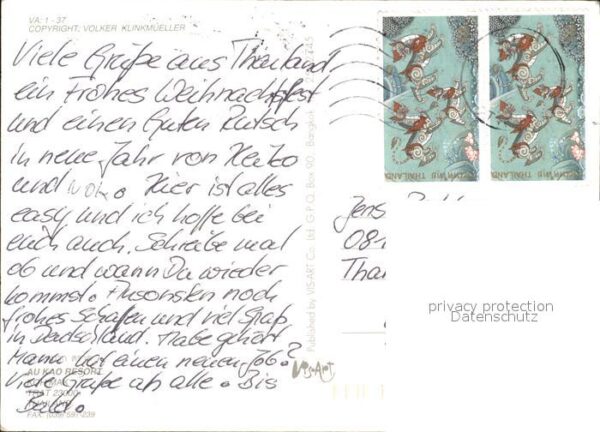 VA: 1 - 37
COPYRIGHT: VOLKER KLINKMÜELLER
Viele Grüße aus Thailand
ein Frohes Weihnachtsfest
und einen Guten Rutsch
in neue Jahr von Heiko
und Hier ist alles
easy und ich hoffe bei
euch auch. Schreibe mal
ob und wann Du wieder
kommst. Ansonsten noch
frohes Schafen und viel Spaß
in Deutschland. Habe gehört
Mann hat einen neuen Job.?
Viele Grüße an alle. Bis
Bald.
AU KAO RESORT
TRAT 23000
FAX: (039) 597-239
Published by VIS-ART Co., Ltd. G.P.O. Box 90, Bangkok
VIS-ART
THAILAND
THAILAND
Jens
08
Tha
privacy protection
Datenschutz